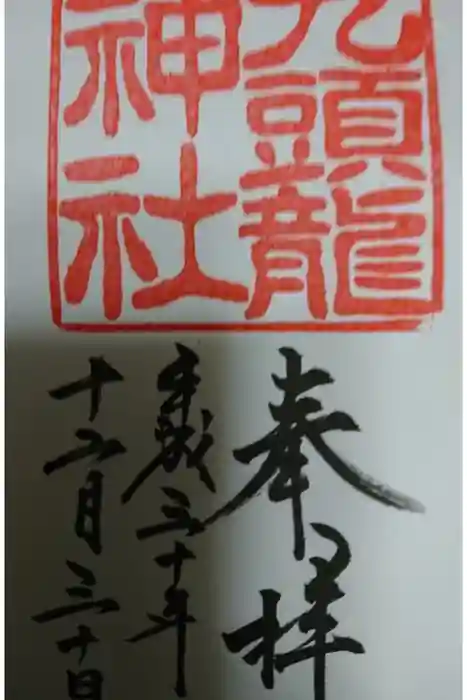 九頭龍
神社
奉拝
平成三十年
十二月三十日